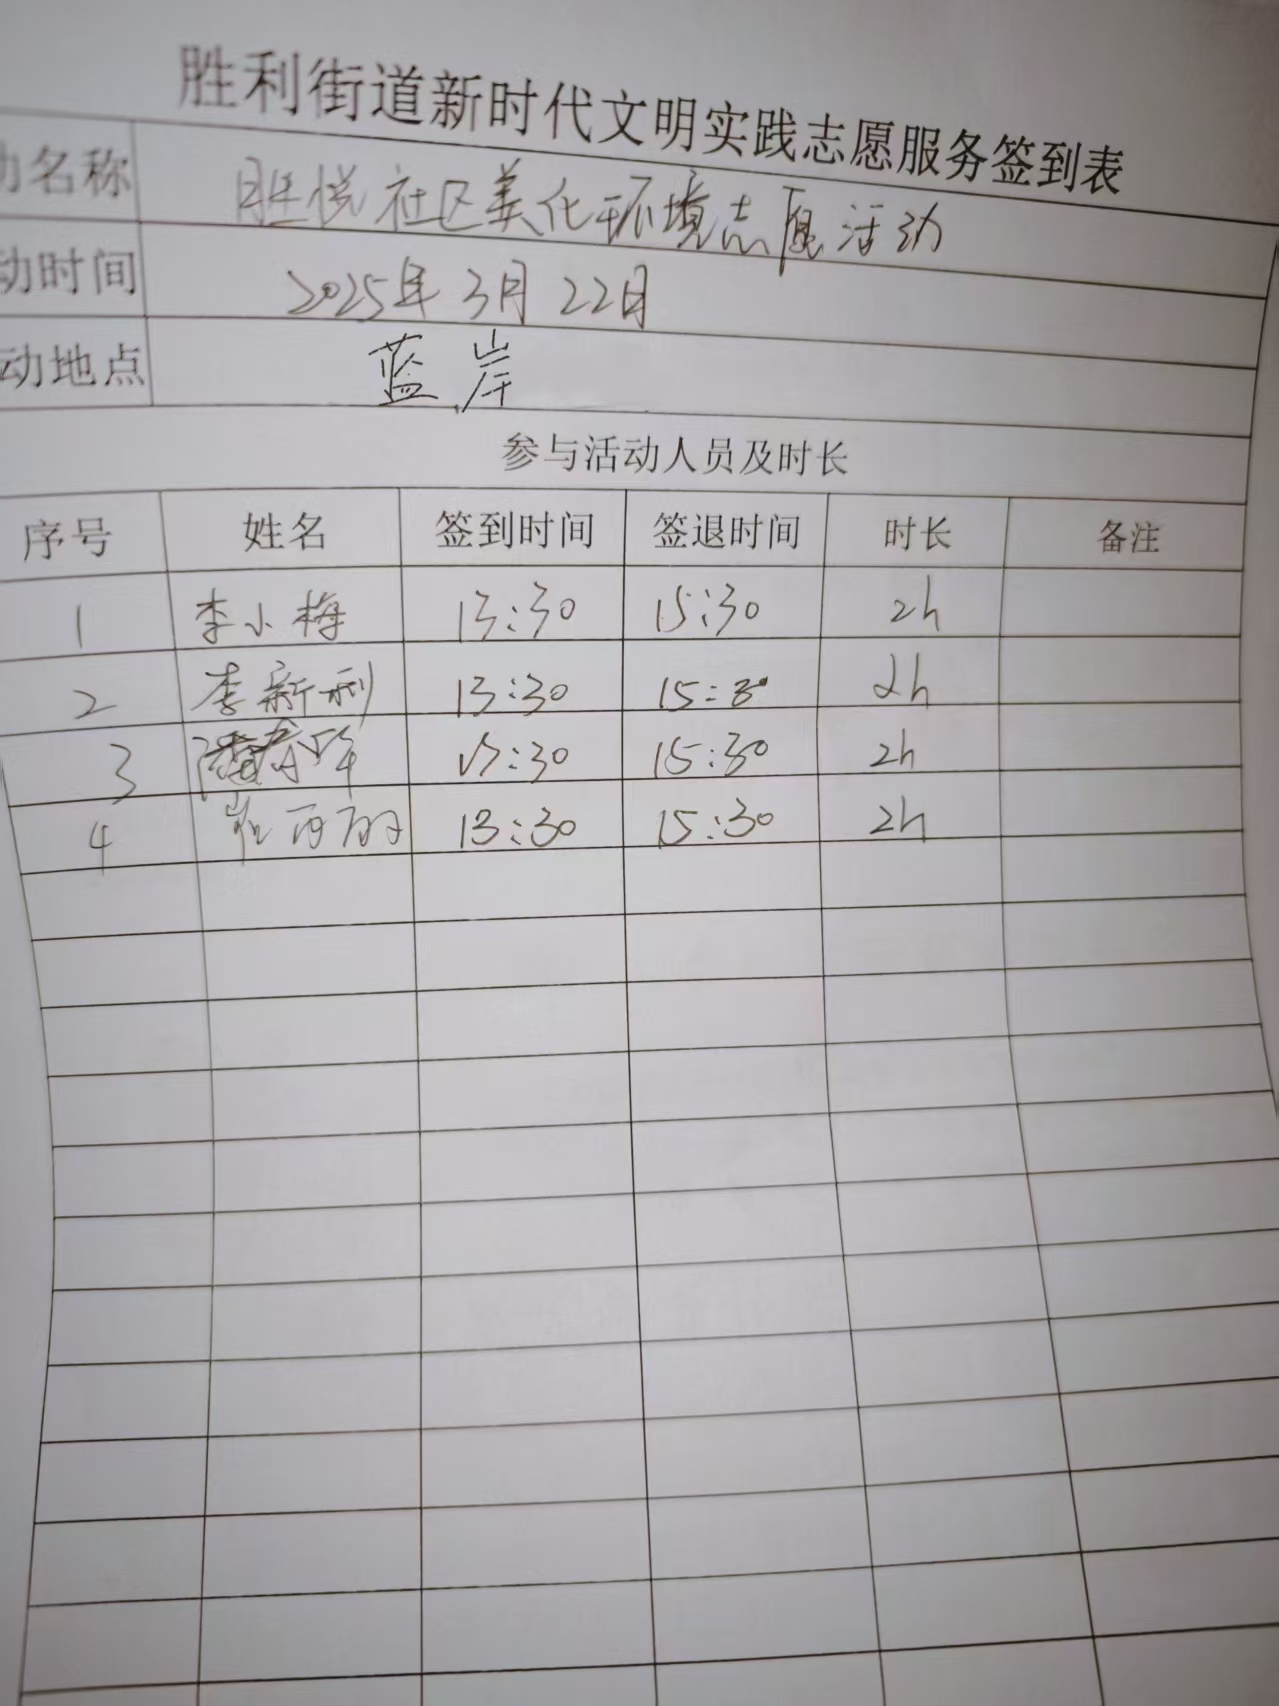 胜利街道新时代文明实践志愿服务签到表
动名称 胜悦社区美化环境志愿活动
动时间 2025年3月22日
动地点 蓝岸
参与活动人员及时长
序号 姓名 签到时间 签退时间 时长 备注
1 李小梅 13:30 15:30 2h
2 李新利 13:30 15:30 2h
3 13:30 15:30 2h
4 崔丽丽 13:30 15:30 2h